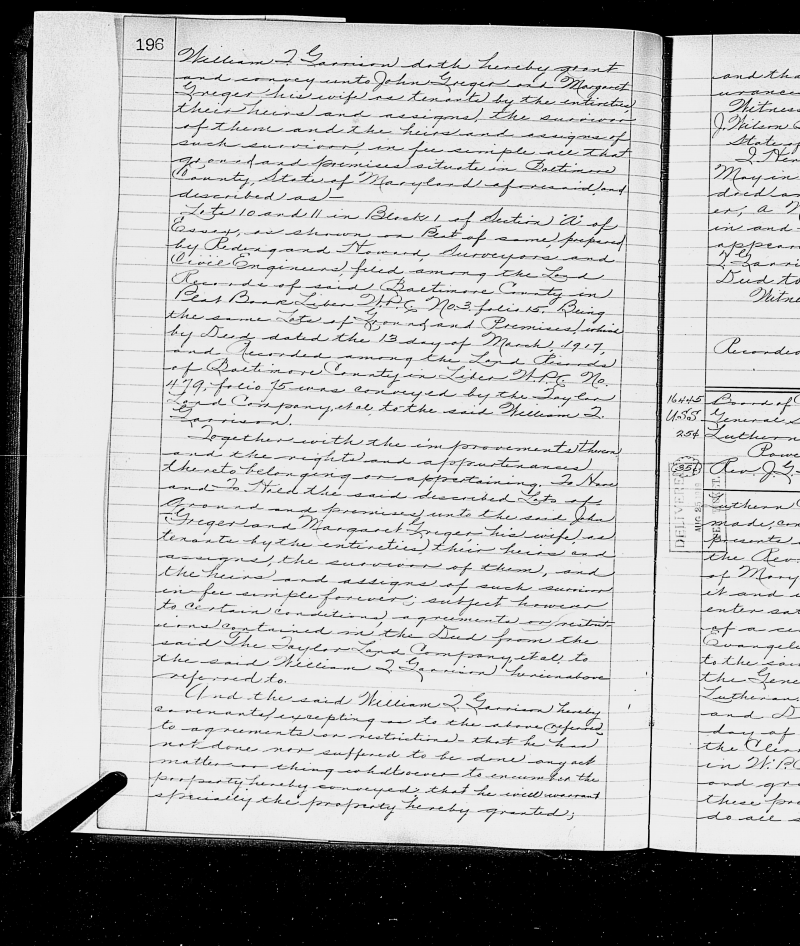 196
William T Garrison doth hereby grant
and convey unto John Greger and Margaret
Greger his wife as tenants by the entireties
their heirs and assigns, the survivor
of them and the heirs and assigns of
such survivor, in fee simple all that
ground and premises situate in Baltimore
County, State of Maryland aforesaid, and
described as—
Lots 10 and 11 in Block 1 of Section "A" of
Essex, as shown on Plat of same, prepared
by and Howard, Surveyors and
Civil Engineers, filed among the Land
Records of said Baltimore County in
Plat Book Liber W.P.C. No. 3 folio 15. Being
the same Lots of Ground and Premises, which
by Deed dated the 13 day of March, 1917,
and Recorded among the Land Records
of Baltimore County in Liber W.P.C. No.
479, folio 75 was conveyed by the Taylor
Land Company, et al. to the said William T.
Garrison.
Together with the improvements thereon
and the rights and appurtenances
thereto belonging or appertaining. To Have
and To Hold the said described Lots of
Ground and premises, unto the said John
Greger and Margaret Greger his wife, as
tenants by the entireties, their heirs and
assigns, the survivor of them, and
the heirs and assigns of such survivor
in fee simple forever; subject however
to certain conditions, agreements or restrict-
ions contained in the Deed from the
said The Taylor Land Company et al. to
the said William T Garrison hereinabove
referred to.
And the said William T Garrison hereby
covenants, excepting as to the above referred
to agreements or restrictions - that he has
not done nor suffered to be done any act
matter or thing whatsoever to encumber the
property hereby conveyed, that he will warrant
specially the property hereby granted;
and tha
urances
Witness
J. Wilson
State of
I Hen
May in
dred an
er, a N
in and
appear
T Garri
Deed to
Witne
Recorded
16445
U.S.S
25¢
35¢
Board of
General S
Luthern
Powe
Rev. J. G.
DELIVERED
Luthern
made, con
presents
the Rev.
of Mary
it and
enter sat
of a ce
Evangeli
to the sai
the Gene
Lutheran
and D
day of
the Cler
in W.P.C
and gra
these pre
do all s